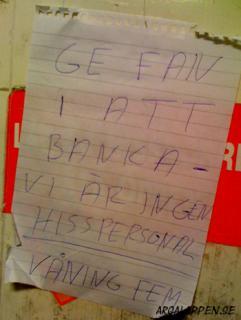 GE FAN
I ATT
BANKA -
VI ÄR INGEN
HISSPERSONAL
VÅNING FEM
ARGALAPPEN.SE